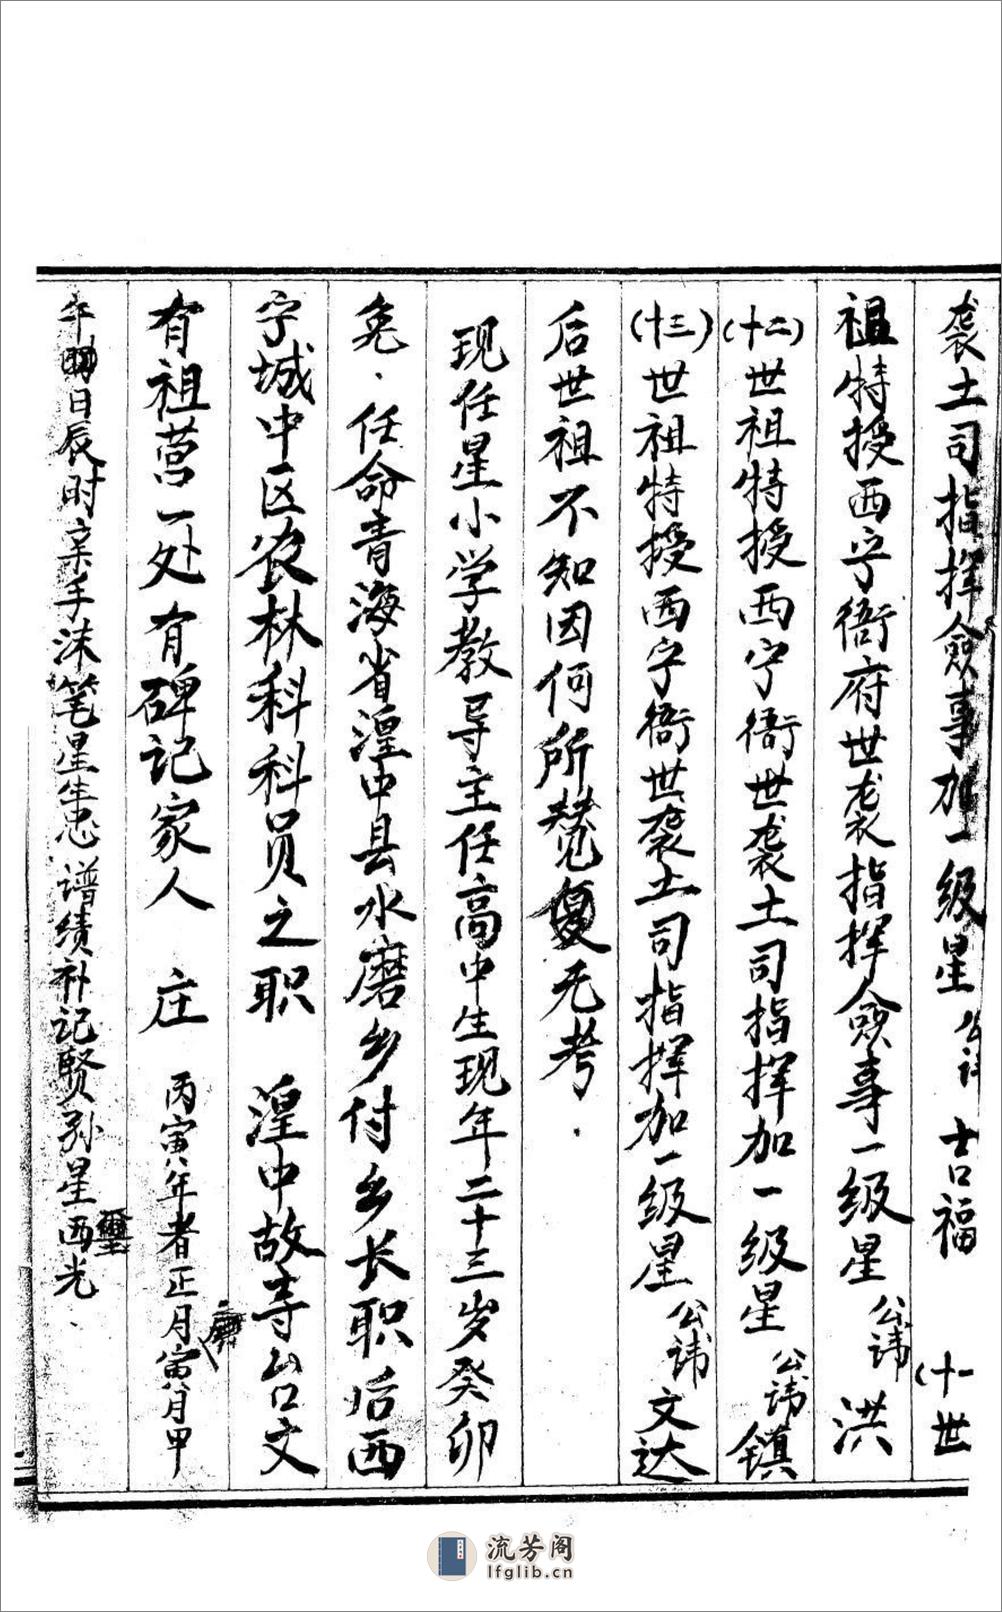 袭土司指挥佥事加一级星公讳 吉福 (十一世
祖特授西宁衙府世袭指挥佥事一级星公讳 洪
(十二)世祖特授西宁衙世袭土司指挥加一级星公讳 镇
(十三)世祖特授西宁衙世袭土司指挥加一级星公讳 文达
后世祖不知因何所赞复无考.
现任星小学教导主任高中生现年二十三岁癸卯
免.任命青海省湟中县水磨乡付乡长职后西
宁城中区农林科科员之职 湟中故寺台文
有祖莹一处有碑记家人 庄 丙寅年者正月寅月甲
午日辰时亲手沫笔星生忠谱绩补记贤孙星西光
流芳阁
lfglib.cn